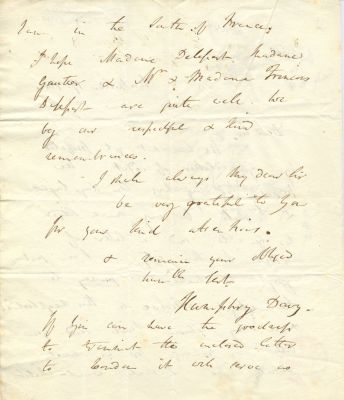 I am in the South of France
I hope Madame Delessert Madame
Gautier & Mr & Madame Francois
Delessert are quite well. We
beg our respectful & kind
remembrances.
- I shall always My dear Sir
be very grateful to you
for your kind attentions.
& remain your obliged
humble Sert
Humphry Davy.
If you can have the goodness
to transmit the enclosed letter
to London it will serve us